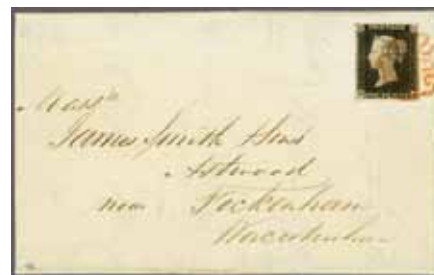 Mess.rs
James Smith & Sons
Astwood
near Feckenham
Worcestershire